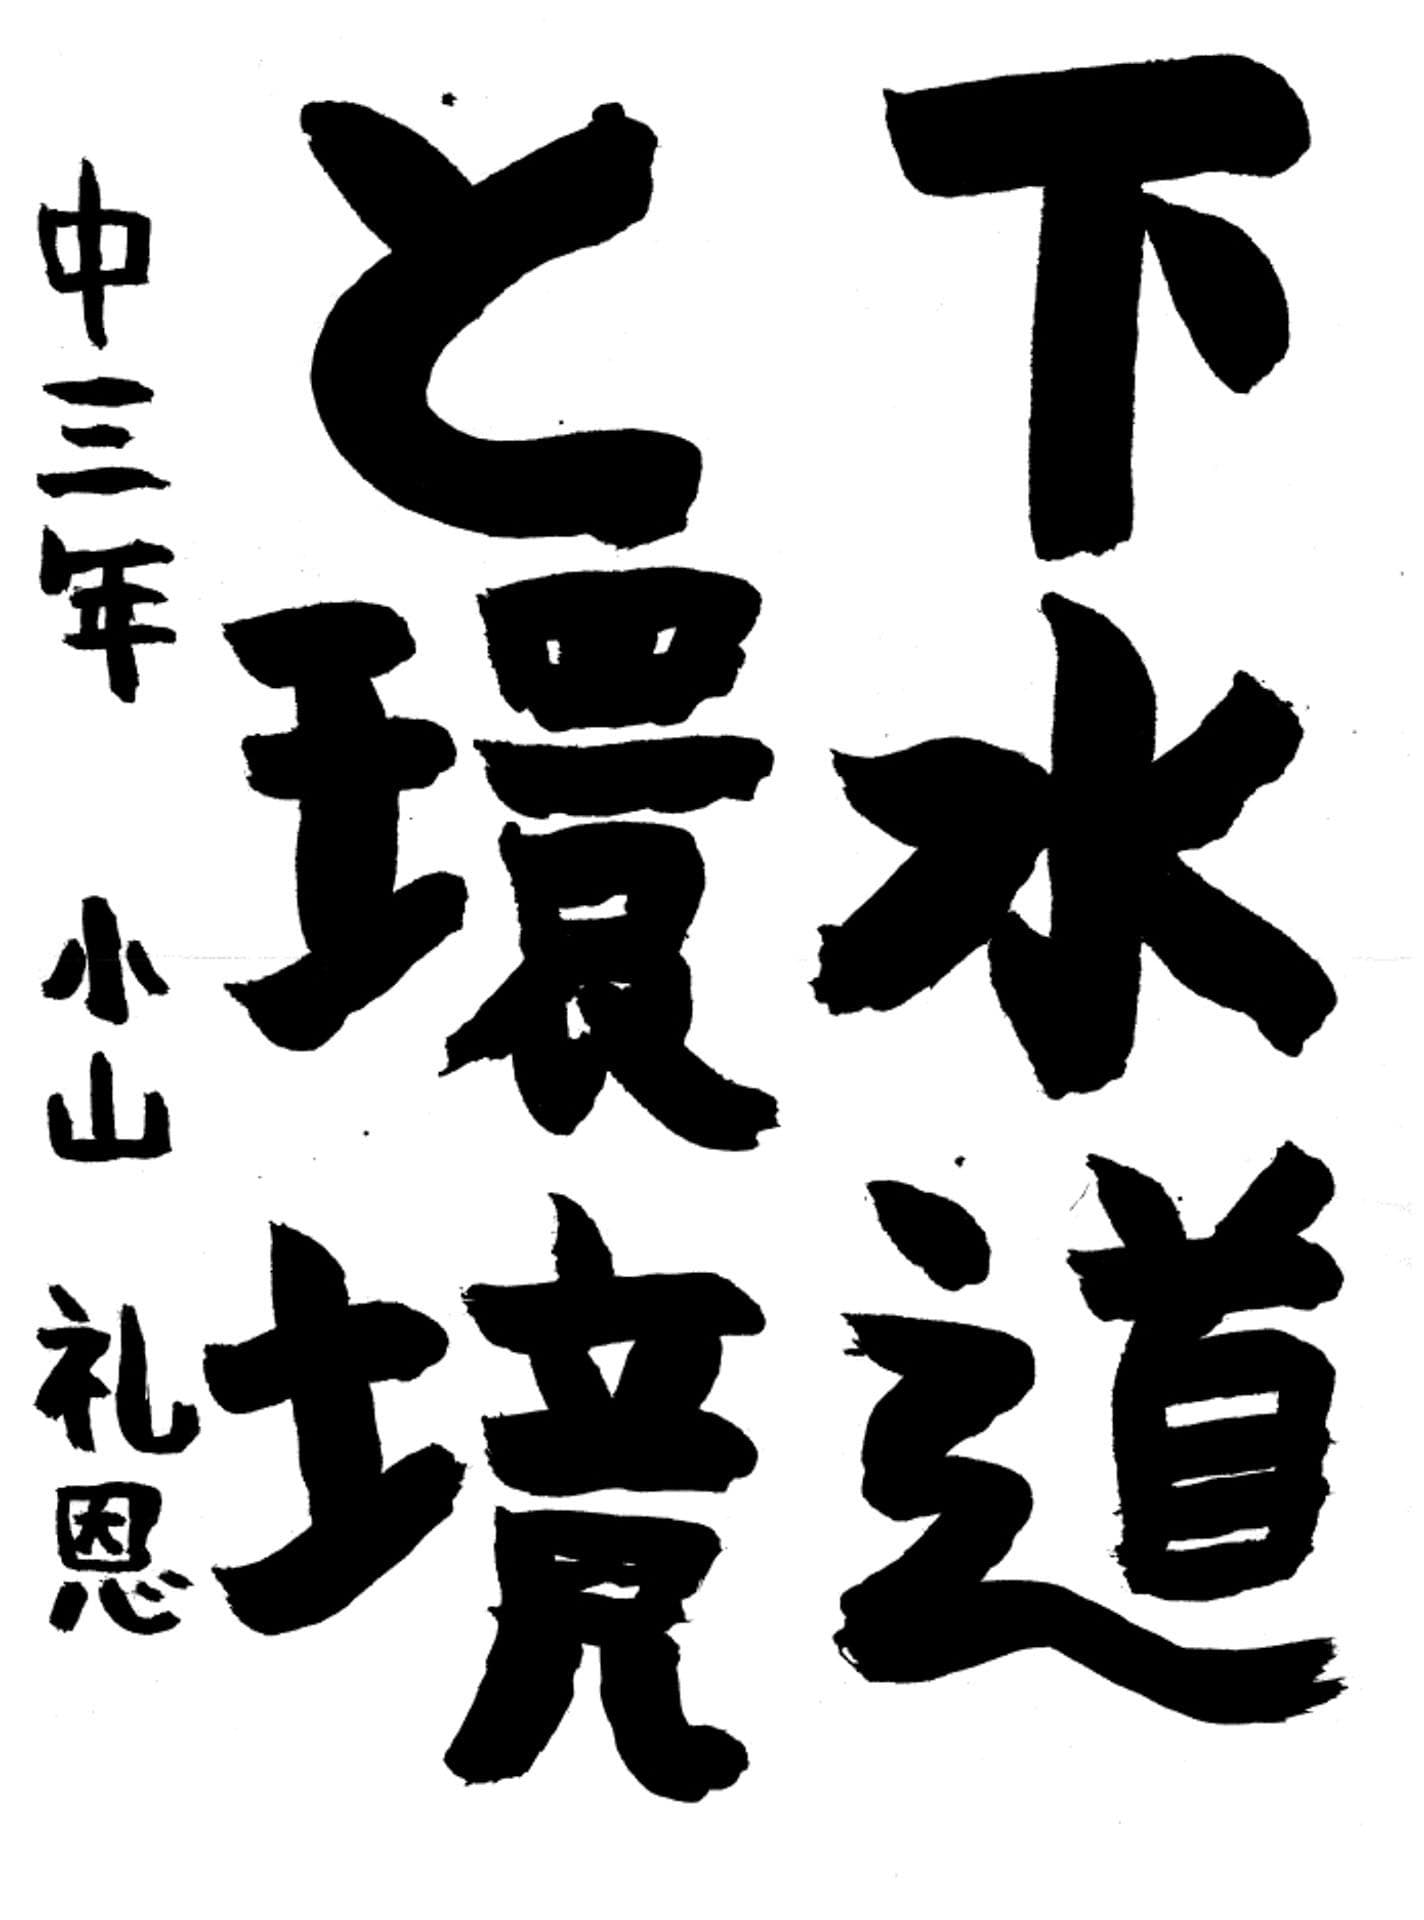 下水道
と環境
中三年 小山礼恩